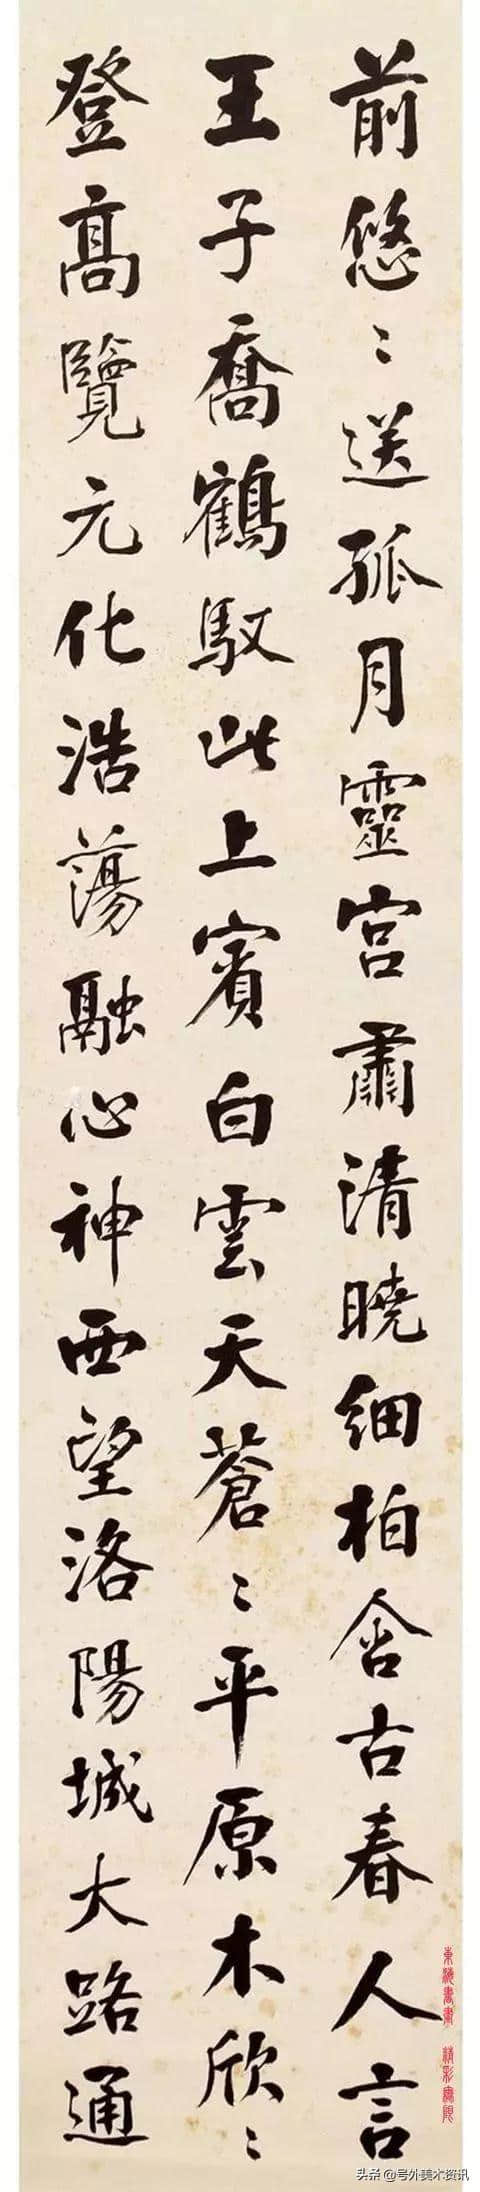 前悠〻送孤月靈宮肅清曉細柏含古春人言
王子喬鶴馭此上賓白雲天蒼〻平原木欣〻
登高覽元化浩蕩融心神西望洛陽城大路通
東海書畫 精彩無限
头条 @号外美术资讯